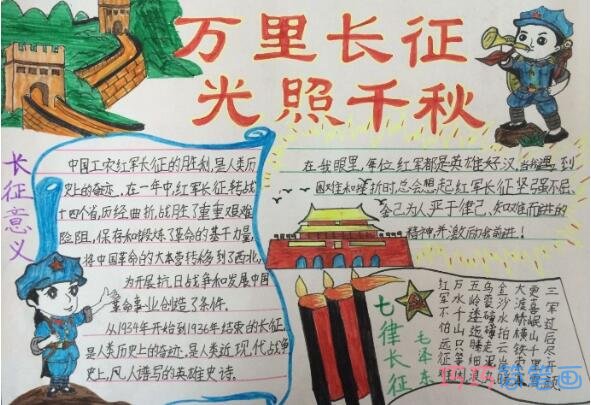 万里长征
光照千秋
长征意义
中国工农红军长征的胜利,是人类历
史上的奇迹,在一年中,红军长征转战
十四个省,历经曲折,战胜了重重艰难
险阻,保存和锻炼了革命的基干力量,
将中国革命的大本营转移到了西北,
为开展抗日战争和发展中国
革命事业创造了条件。
从1934年开始到1936年结束的长征,
是人类历史上的奇迹,是人类近、现代战争
史上,凡人谱写的英雄史诗。
在我眼里,每位红军都是英雄好汉,当我遇到
困难和挫折时,总会想起红军长征坚强不屈、
舍己为人、严于律己、知难而进的
精神,并激励我前进!
七律长征
毛泽东
红军不怕远征难
万水千山只等闲
五岭逶迤腾细浪
乌蒙磅礴走泥丸
金沙水拍云
大渡桥横铁索
更喜岷山千里
三军过后尽开颜